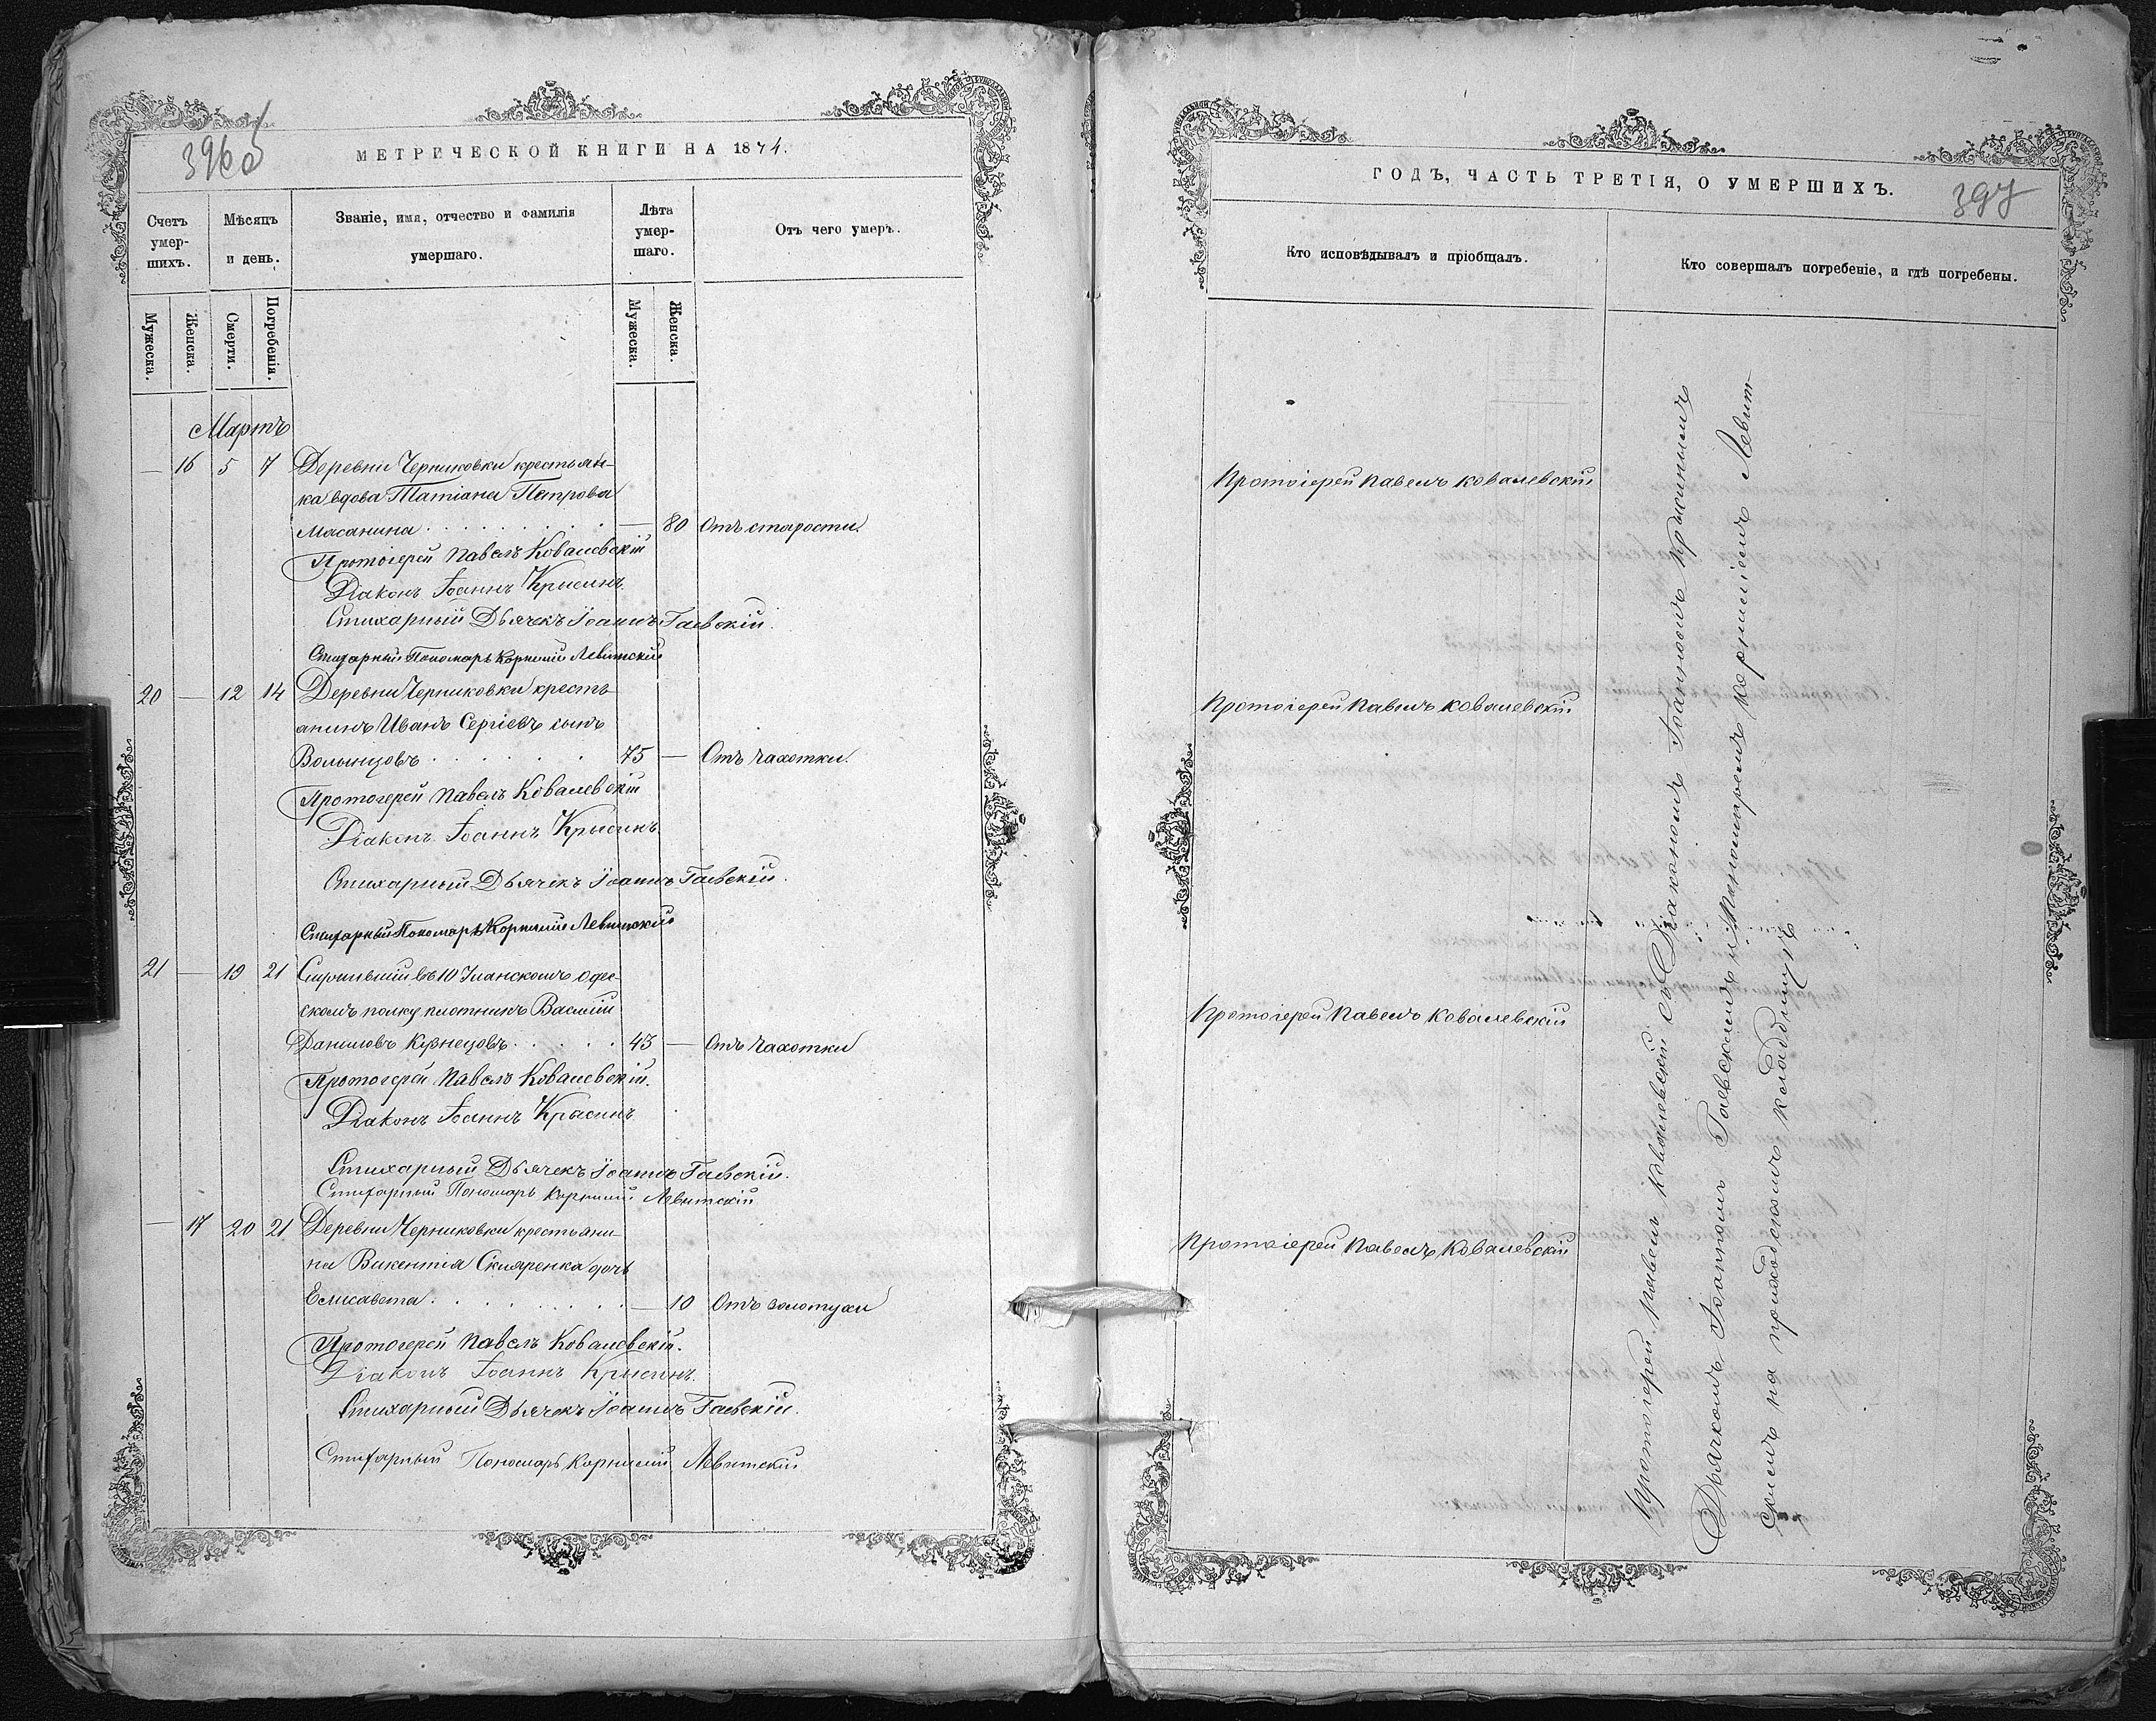 396 об
МЕТРИЧЕСКОЙ КНИГИ НА 1874.
Счетъ умер-шихъ.
Мѣсяцъ и день.
Званіе, имя, отчество и фамилія умершаго.
Лѣта умер-шаго.
Отъ чего умеръ.
Мужеска.
Женска.
Смерти.
Погребенія.
Мужеска.
Женска.
Мартъ
— 16 5 7 Деревни Черниковки крестьян-
ка вдова Татіана Петрова
Масанина . . . . . . . . . — 80 Отъ старости.
Протоіерей Павелъ Ковалевскій
Діаконъ Іоаннъ Крысинъ.
Стихарный Дьячекъ Іоаннъ Гаевскій.
Стихарный Пономарь Корнилій Левитскій
20 — 12 14 Деревни Черниковки кресть-
янинъ Иванъ Сергіевъ сынъ
Волынцовъ . . . . . . 75 — Отъ чахотки.
Протоіерей Павелъ Ковалевскій
Діаконъ Іоаннъ Крысинъ.
Стихарный Дьячекъ Іоаннъ Гаевскій.
Стихарный Пономарь Корнилій Левитскій
21 — 19 21 Служившій въ 10 Уланскомъ Одес-
скомъ полку плотникъ Василій
Даниловъ Кузнецовъ . . . . . 43 — Отъ чахотки
Протоіерей Павелъ Ковалевскій.
Діаконъ Іоаннъ Крысинъ
Стихарный Дьячекъ Іоаннъ Гаевскій.
Стихарный Пономарь Корнилій Левитскій
— 17 20 21 Деревни Черниковки крестьяни-
на Викентія Скляренка дочь
Елисавета . . . . . . . . . — 10 Отъ золотухи
Протоіерей Павелъ Ковалевскій.
Діаконъ Іоаннъ Крысинъ.
Стихарный Дьячекъ Іоаннъ Гаевскій.
Стихарный Пономарь Корнилій Левитскій
ГОДЪ, ЧАСТЬ ТРЕТІЯ, О УМЕРШИХЪ.
397
Кто исповѣдывалъ и пріобщалъ.
Кто совершалъ погребеніе, и гдѣ погребены.
Протоіерей Павелъ Ковалевскій
Протоіерей Павелъ Ковалевскій
Протоіерей Павелъ Ковалевскій
Протоіерей Павелъ Ковалевскій
Протоіерей Павелъ Ковалевскій съ Діакономъ Іоанномъ Крысинымъ
Дьячкомъ Іоанномъ Гаевскимъ и Пономаремъ Корниліемъ Левит-
скимъ на приходскомъ кладбищѣ